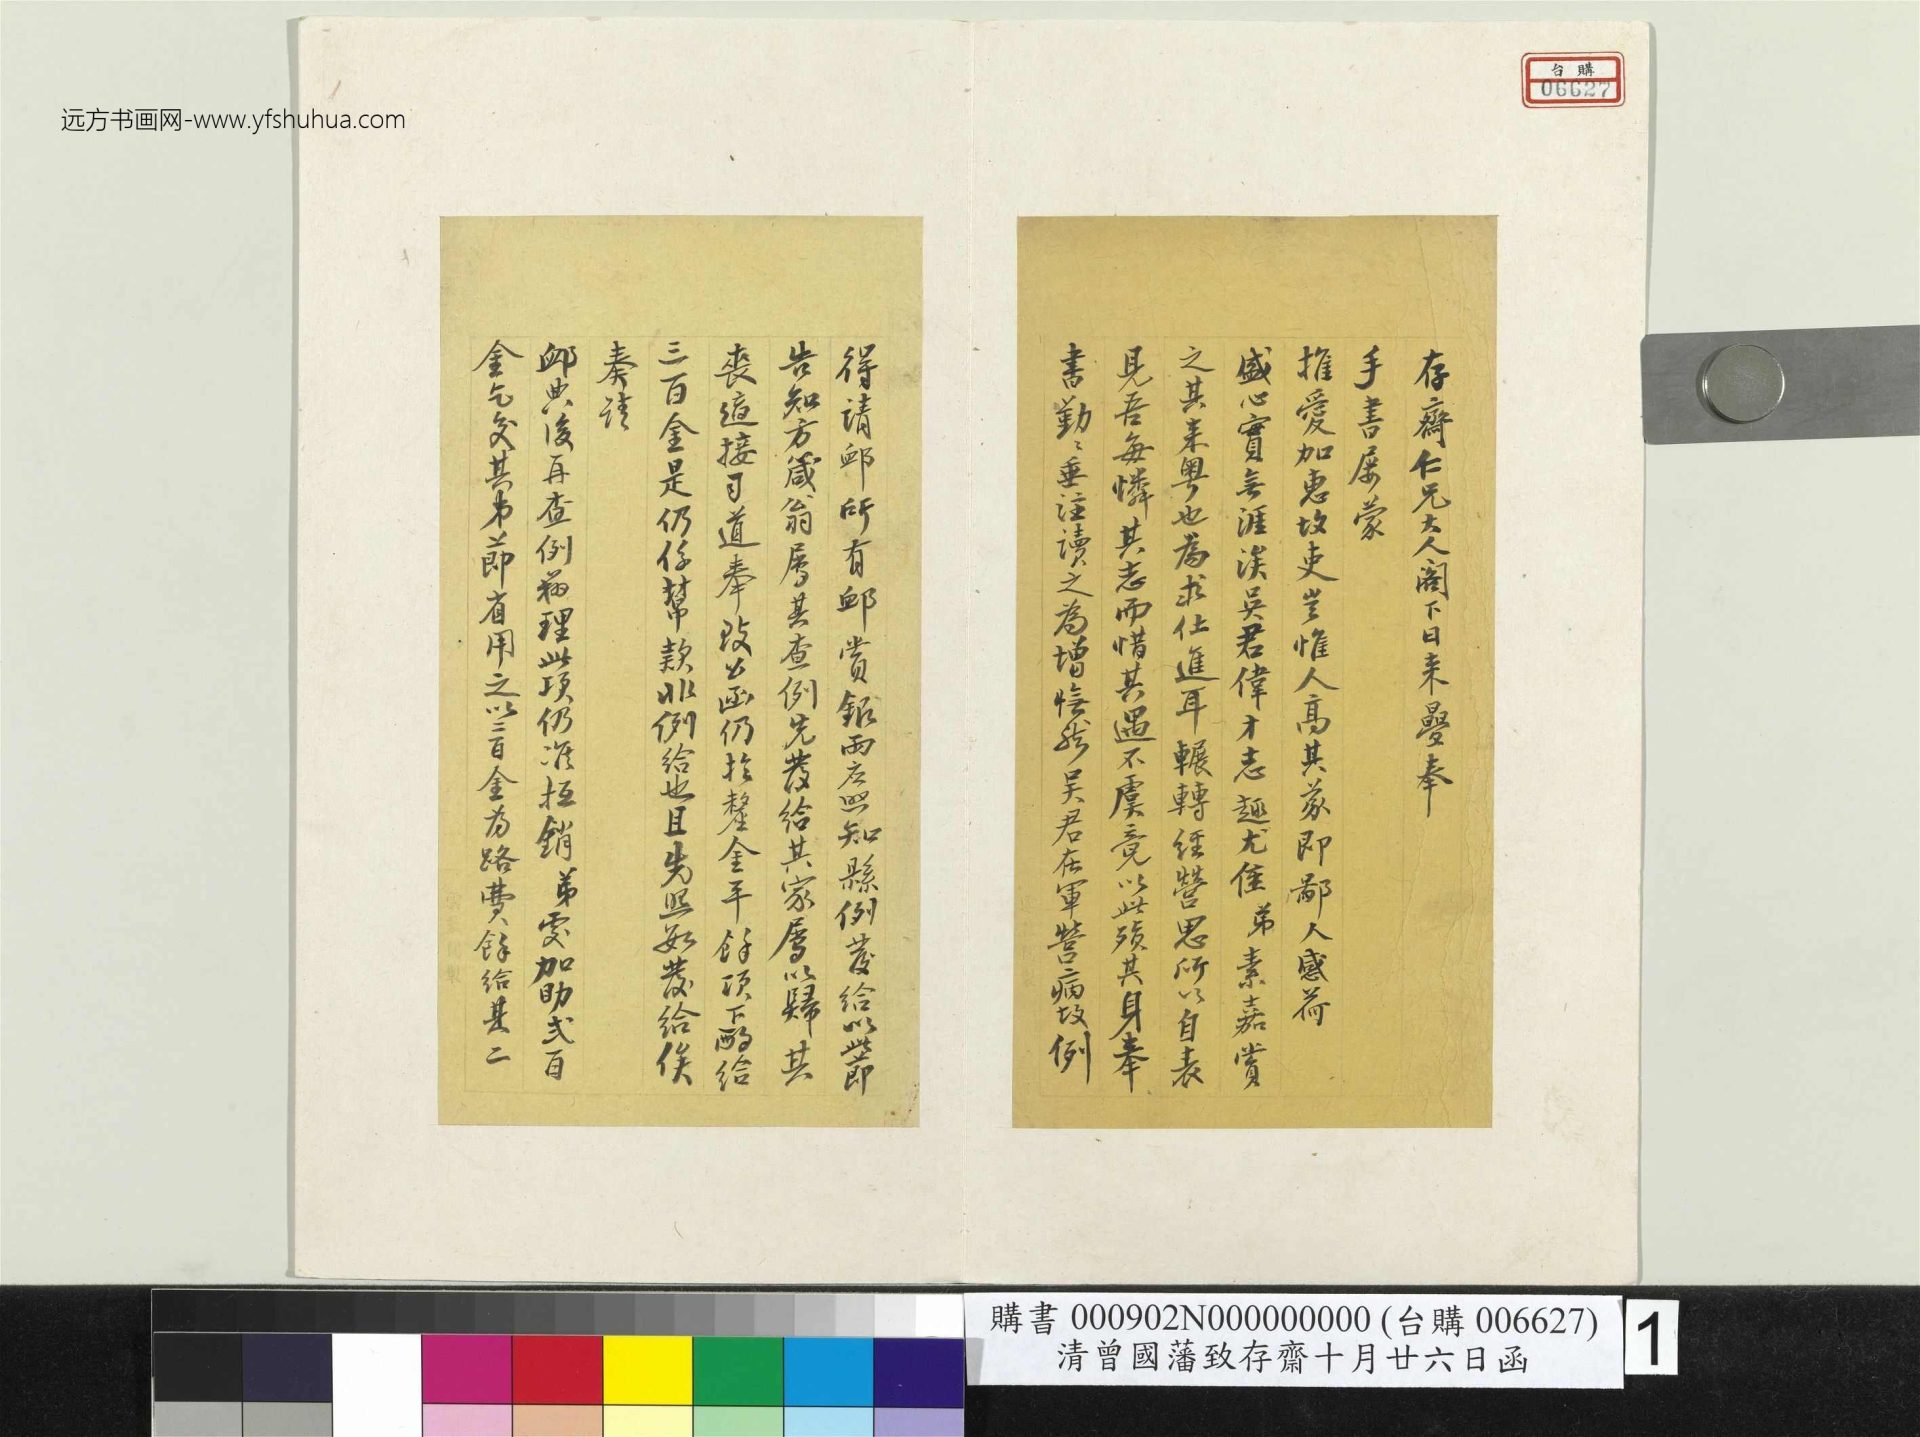 远方书画网-www.yfshuhua.com
台購
06627
存齋仁兄大人閣下日来疊奉
手書屡蒙
推愛加惠故吏豈惟人高其義即鄙人感荷
盛心實無涯涘吴君偉才志趣尤佳弟素嘉賞
之其来粤也為求仕進耳輾轉經營思所以自表
見吾每憐其志而惜其遇不虞竟以此殞其身奉
書勤〻垂注讀之為增悵然吴君在軍營病故例
得請邺所有邺賞銀兩应照知縣例發給以此節
告知方箴翁屬其查例先發給其家屬以歸其
喪適接司道奉致公函仍於釐金平餘項下酌給
三百金是仍係幫款非例給也且先照数發給俟
奏請
邺典後再查例辦理此項仍准抵銷弟處加助弍百
金乞交其弟節省用之以三百金为路費餘給其二
購書 000902N000000000 (台購 006627)
清曾國藩致存齋十月廿六日函
1